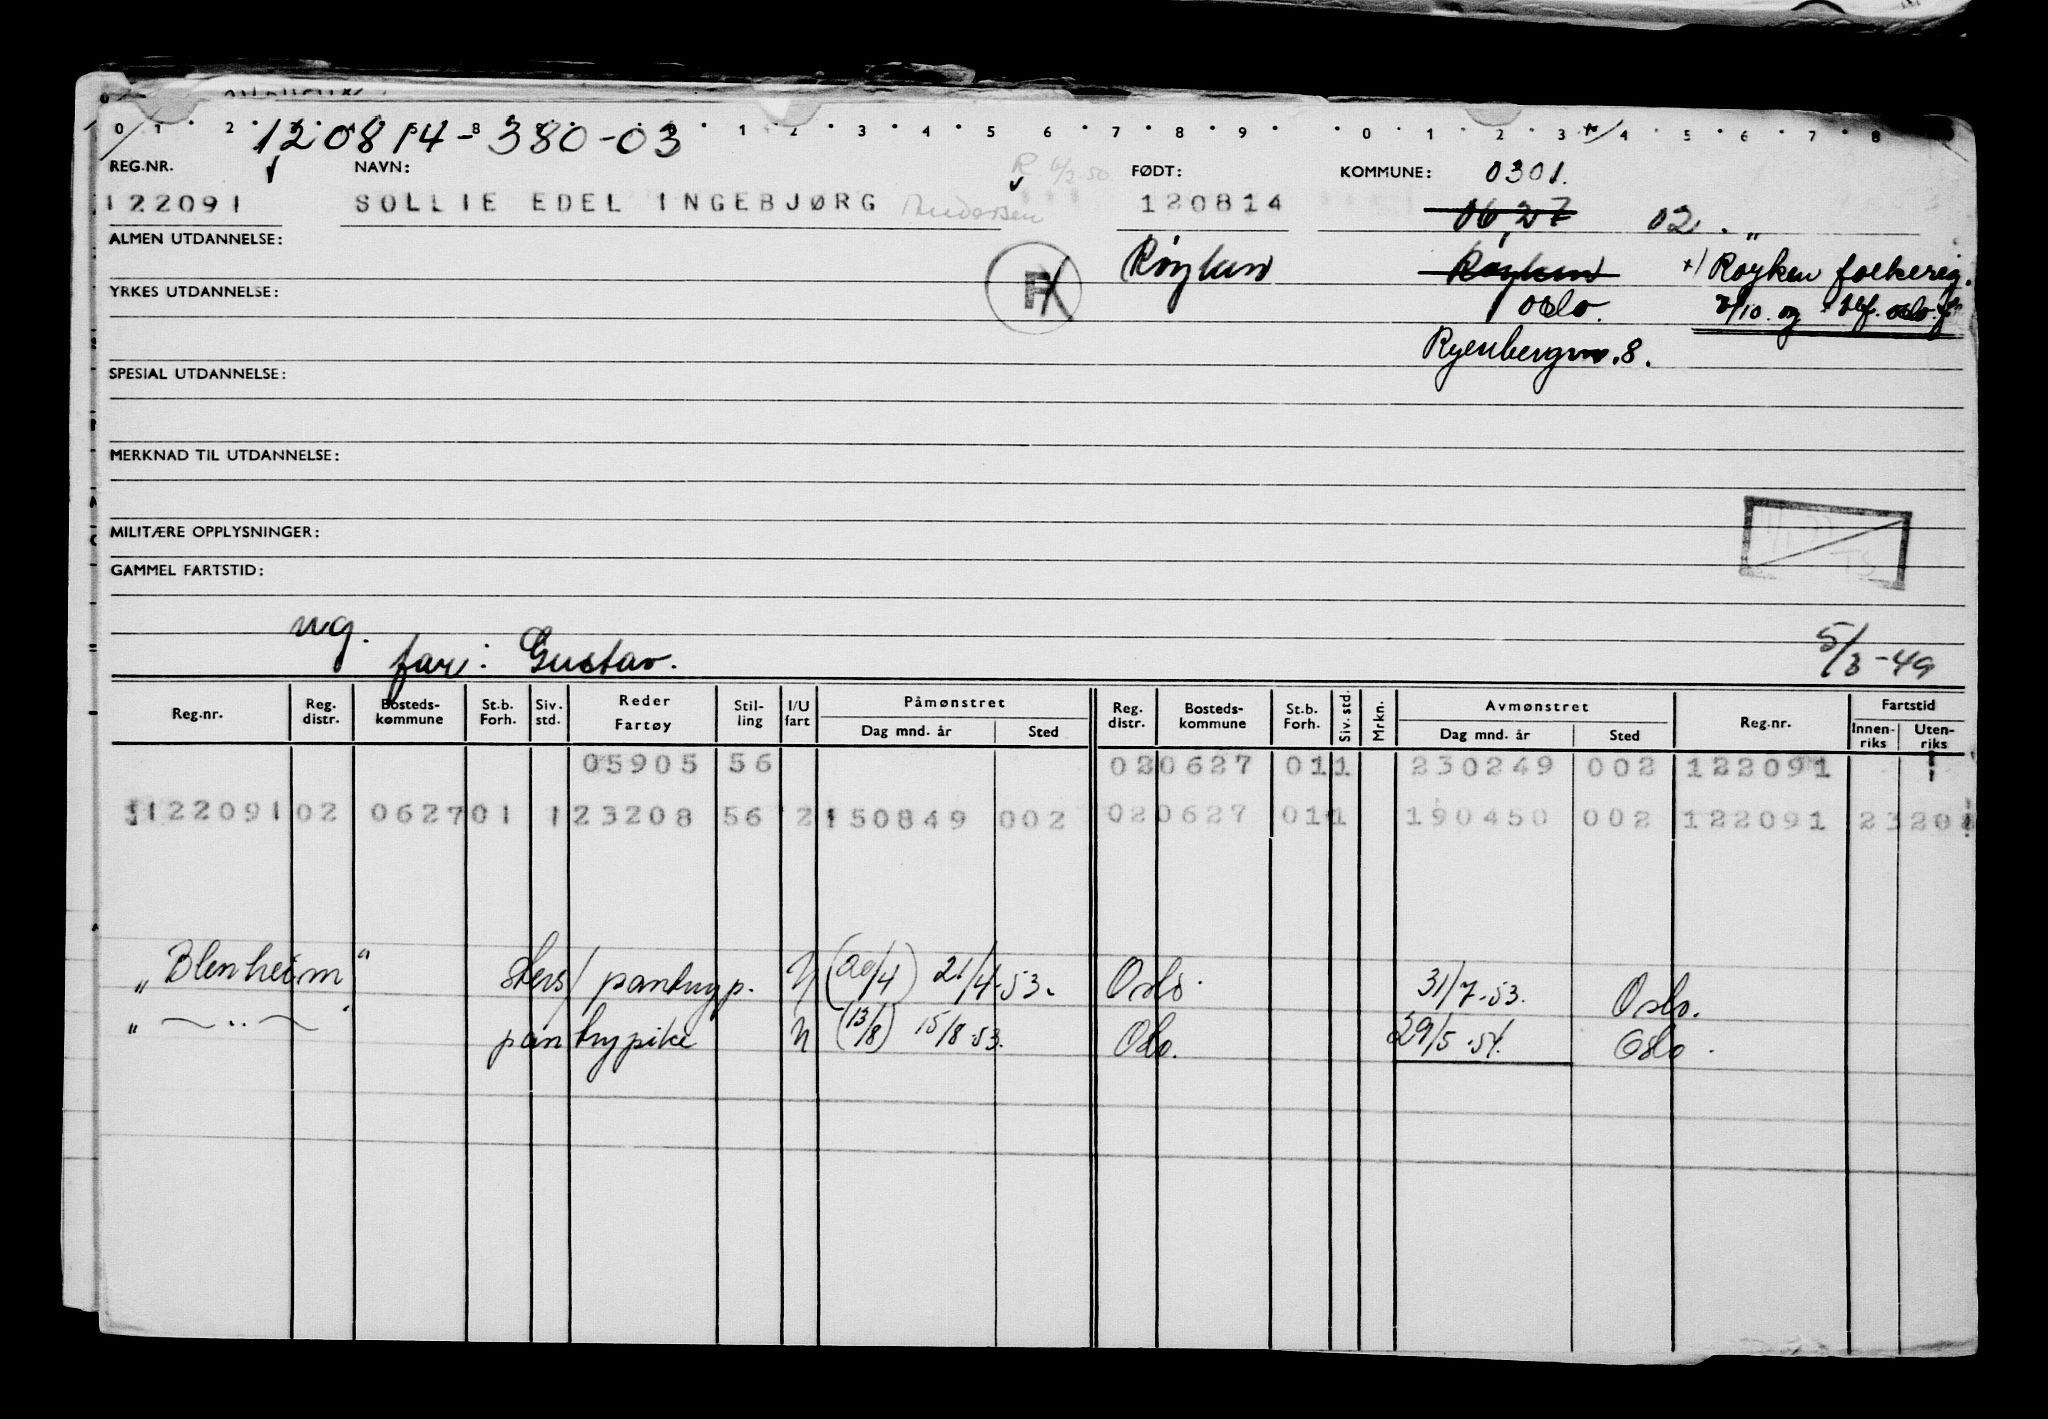 0 1 2 8 1 2 3 4 5 6 7 8 9 0 1 2 3 4 5 6 7 8
120814-380-03
REG.NR. NAVN: FØDT: KOMMUNE: 0301.
122091 SOLLIE EDEL INGEBJØRG Andersen 120814 0627 02 . "
ALMEN UTDANNELSE: Røyken Røyken +) Røyken folkereg.
YRKES UTDANNELSE: oslo. 3/10. og tlf. oslo f
Ryenbergvn. 8.
SPESIAL UTDANNELSE:
MERKNAD TIL UTDANNELSE:
MILITÆRE OPPLYSNINGER:
GAMMEL FARTSTID: TS
ug.
far: Gustav. 5/3-49
Reg.nr. Reg. distr. Bosteds-kommune St.b. Forh. Siv. std. Reder Fartøy Stil-ling I/U fart Påmønstret Dag mnd. år Sted Reg. distr. Bosteds-kommune St.b. Forh. Siv. std. Mrkn. Avmønstret Dag mnd. år Sted Reg.nr. Fartstid Innen-riks Uten-riks
05905 56 02 0627 01 1 230249 002 122091
122091 02 0627 01 1 23208 56 2 150849 002 02 0627 01 1 190450 002 122091 23208
„Blenheim" sters/pantryp. U (20/4) 21/4-53. Oslo. 31/7-53. Oslo.
" — " — pantrypike U (13/8) 15/8-53. Oslo. 29/5-54. Oslo.